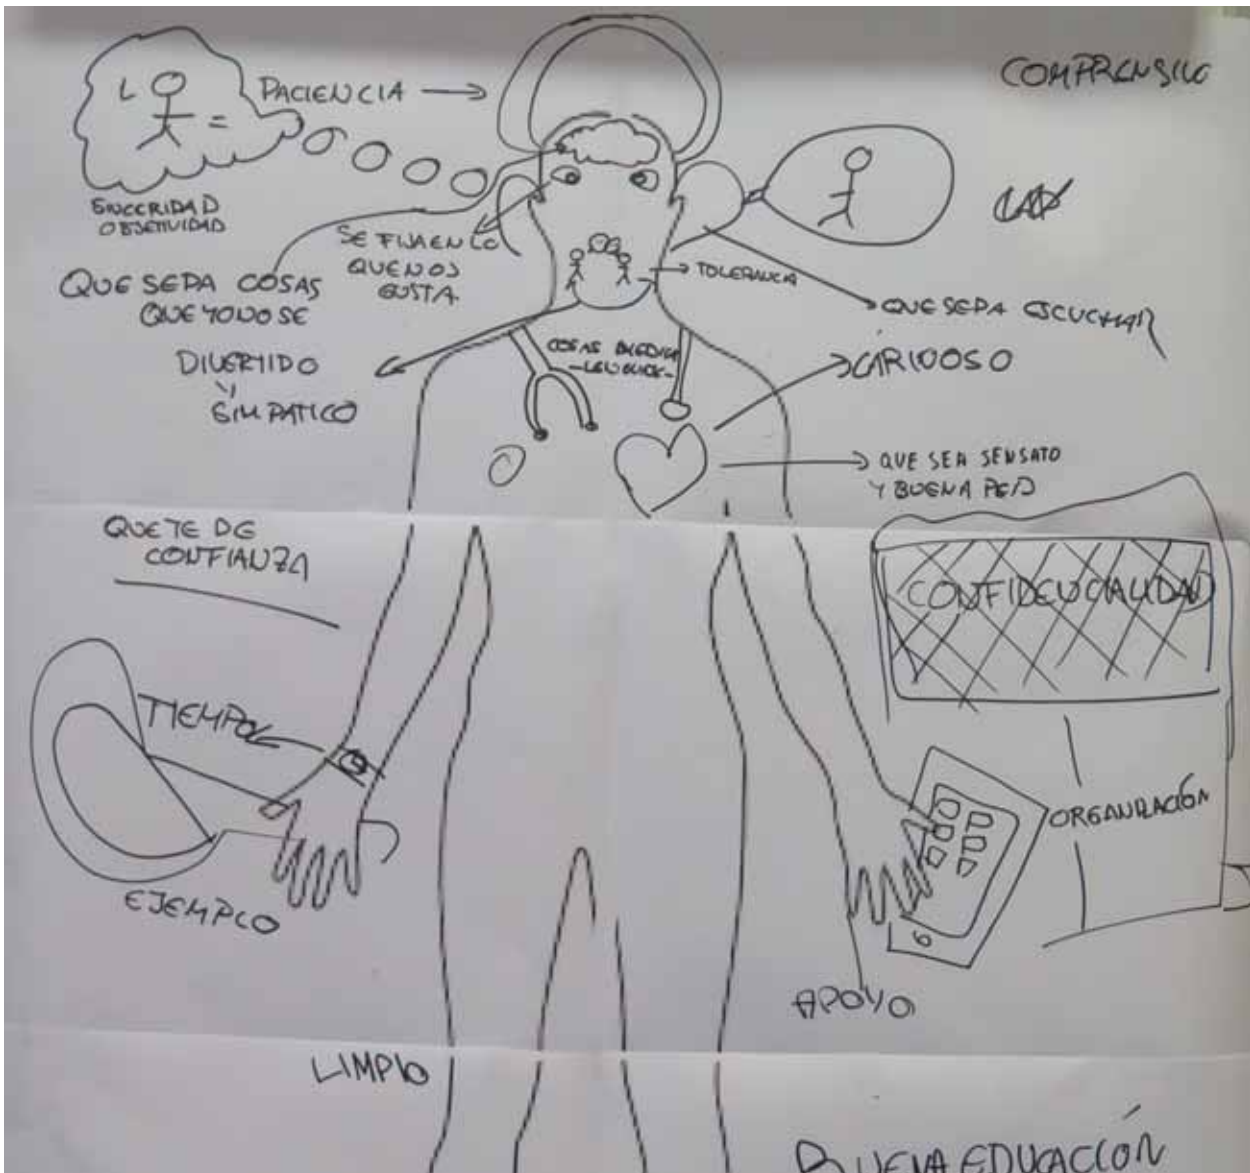 COMPRENSIVO
PACIENCIA
L =
SINCERIDAD
OBJETIVIDAD
SE FIJA EN LO
QUE NOS
GUSTA
QUE SEPA COSAS
QUE YO NO SE
TOLERANCIA
QUE SEPA ESCUCHAR
DIVERTIDO
Y
SIMPATICO
COSAS
CARIÑOSO
QUE SEA SENSATO
Y BUENA
QUE TE DE
CONFIANZA
CONFIDENCIALIDAD
TIEMPO
ORGANIZACIÓN
EJEMPLO
APOYO
LIMPIO
BUENA EDUCACCIÓN